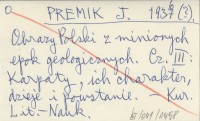 PREMIK J. 1934 (?)
Obrazy Polski z minionych
epok geologicznych. Cz. III:
Karpaty, ich charakter,
dzieje i powstanie. - Kur.
Lit-Nauk.